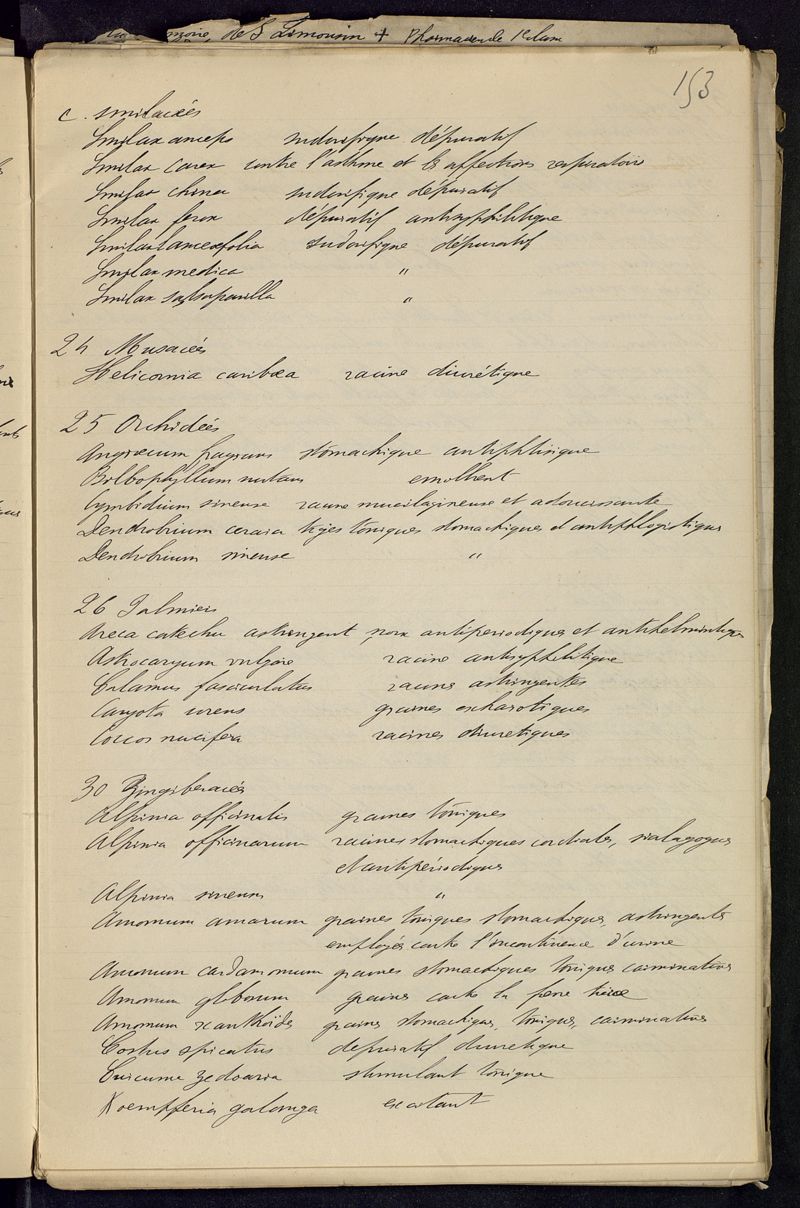 de S Limousin + Pharmacien de 1e classe
153
C. Smilacées
Smilax anceps sudorifique dépuratif
Smilax Carex contre l'asthme et les affections respiratoires
Smilax china sudorifique dépuratif
Smilax ferox dépuratif antisyphilitique
Smilax lancexfolia sudorifique dépuratif
Smilax medica "
Smilax salsaparilla "
24 Musacées
Helicornia caribœa racine diurétique
25 Orchidées
Angræcum fragrans stomachique antiphtisique
Bulbophyllum nutans emollient
Cymbidium sinense racine mucilagineuse et adoucissante
Dendrobium ceraia tiges toniques stomachiques et antiphlogistiques
Dendrobium sinense "
26 Palmiers
Areca catechu astringent noix antiperiodiques et antihelmintiques
Astrocaryum vulgaire racine antisyphilitique
Calamus fasciculatus racines astringentes
Caryota urens graines escharotiques
Coccos nucifera racines diuretiques
30 Zingiberacées
Alpinia officinalis graines toniques
Alpinia officinarum racines stomachiques cordiales, sialagogues
et antipériodiques
Alpinia sinensis "
Amomum amarum graines toniques stomachiques, astringentes
employés contre l'incontinence d'urine
Amomum cardamomum graines stomachiques toniques carminatives
Amomum globosum graines contre la fievre
Amomum xanthoïdes graines stomachiques, toniques, carminatives
Costus spicatus depuratif diuretique
Curcuma zedoaria stimulant tonique
Koempferia galanga excitant